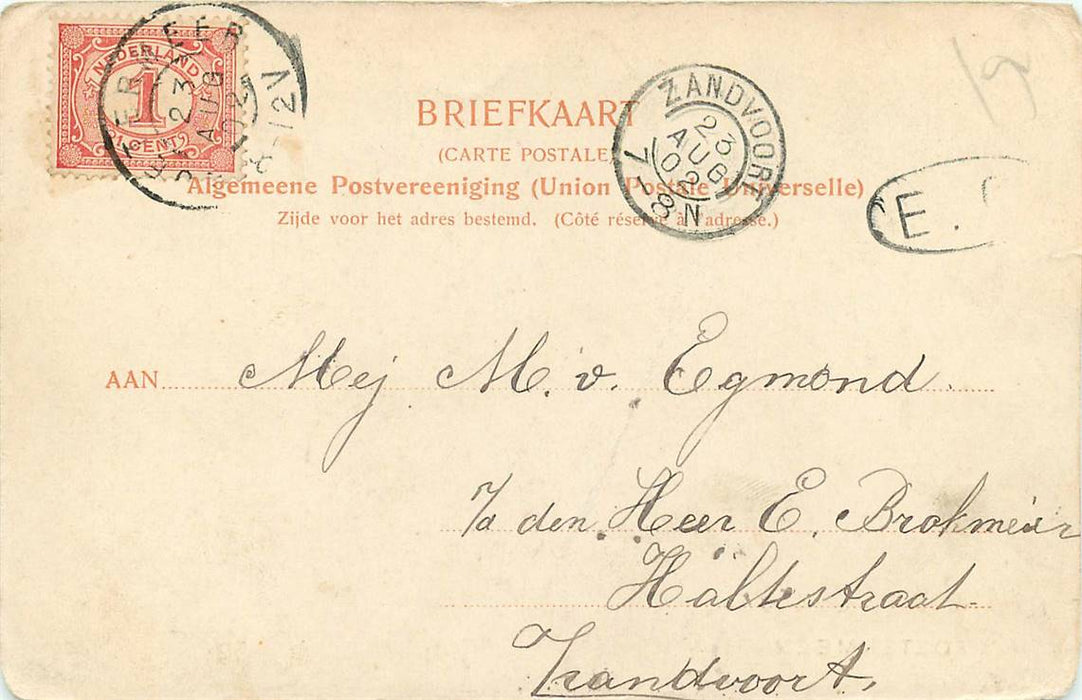 NEDERLAND
1
1 CENT
23 AUG 02
8-12V
BRIEFKAART
(CARTE POSTALE)
Algemeene Postvereeniging (Union Postale Universelle)
Zijde voor het adres bestemd. (Côté réservé à l'adresse.)
ZANDVOORT
23 AUG 02
7-8N
E.
AAN Mej M. v. Egmond
p/a den Heer E. Brokmeier
Haltestraat
Zandvoort.